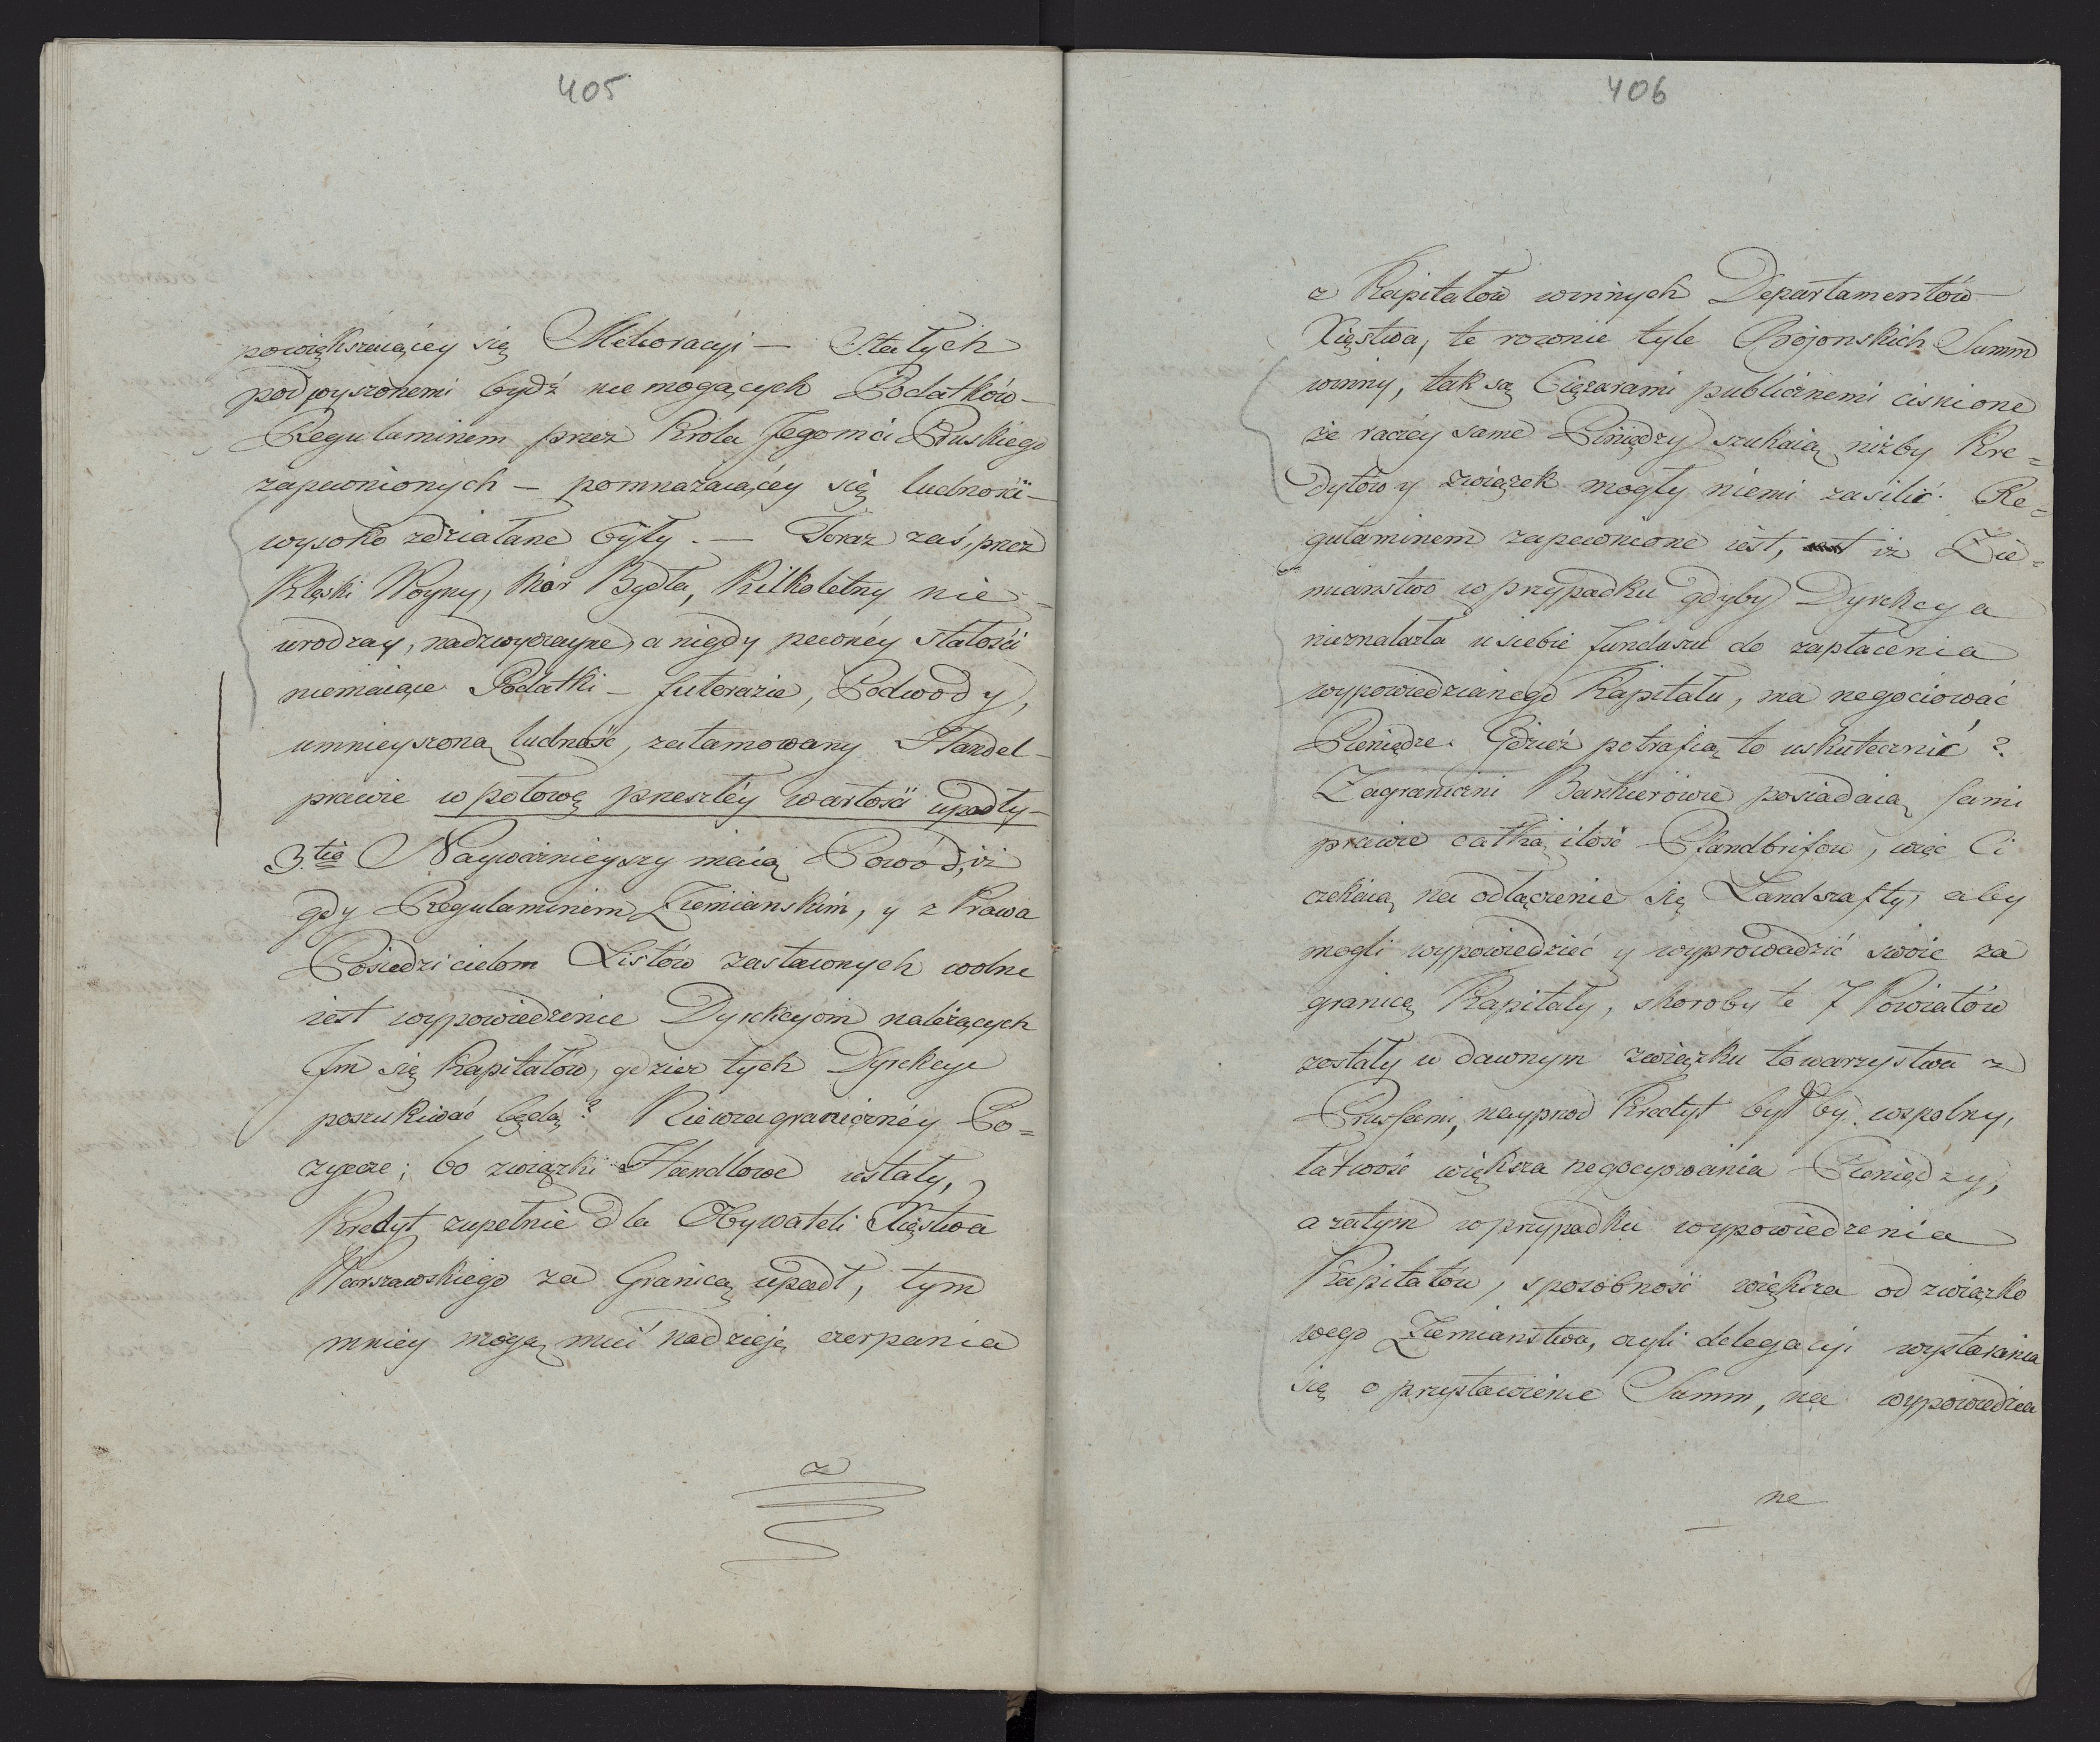 405
powiększaiącey się Melioracyi — Stałych
podwyszonemi bydź nie mogących Podatków —
Regulaminem przez Krola Jegomci Pruskiego
zapewnionych — pomnazaiącey się ludności —
wysoko zdziałane były. — Teraz zaś, przez
Klęski Woyny, Mor Bydła, Kilkoletny nie-
urodzay, nadzwyczayne, a nigdy pewnéy stałości
niemaiące Podatki — futerazie, Podwody,
umnieyszoną ludność, zatamowany Handel —
prawie w połowę preszłéy wartości upadły —
3.tio Nayważnieyszy maią Powód, iż
gdy Regulaminem Ziemianskim, y z Prawa
Posiedzicielom Listów zastawnych wolne
iest wypowiedzenie Dyrekcyom należących
Im się Kapitałów, gdzież tych Dyrekcye
poszukiwać będą? Niewzagraniczney Po=
zycze; bo związki Handlowe ustały,
Kredyt zupełnie dla Obywateli Xięstwa
Warszawskiego za Granicą upadł, tym
mniey mogą mieć nadzieję czerpania
z
406
z Kapitałow winnych Departamentów
Xięstwa, te rownie tyle Bojonskich Summ
winny, tak są Ciężarami publicznemi cisnione
że raczéy same Piniędzy szukaią niżby Kre=
dytowy związek mogły niemi zasilić. Re=
gulaminem zapewnione iest, iż Zie=
mianstwo w przypadku gdyby Dyrekcya
nieznalazła u siebie funduszu do zapłacenia
wypowiedzianego Kapitału, ma negociować
Pieniądze. Gdzież potrafią to uskutecznić?
Zagraniczni Bankierowie posiadaią sami
prawie całką ilość Pfandbrifow, więc Ci
czekaią na odłączenie się Landszafty, aby
mogli wypowiedzieć y wyprowadzić swoie za
granicę Kapitały, skoroby te 7 Powiatów
zostały w dawnym związku towarzystwa z
Prussami, nayprzod Kredyt był by wspolny,
łatwość większa negocyowania Pieniędzy,
a zatym w przypadku wypowiedzenia
Kapitałow, sposobność większa od związko
wego Ziemianstwa, czyli delegacyi wystarania
się o przystawienie Summ, na wypowiedzia
ne